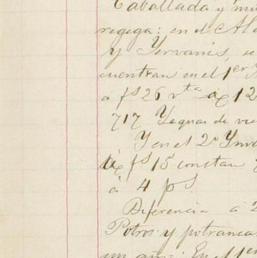 Caballada y mu
regega; en el Al
y Yervanis, se
cuentran en el 1er
a fs 26 vta a 12
717 Yeguas de vie
Y en el 2º Ynv
fs 15 constan
a 4 ps
Diferencia a 2
Potros y potranca
un año: En el 1er